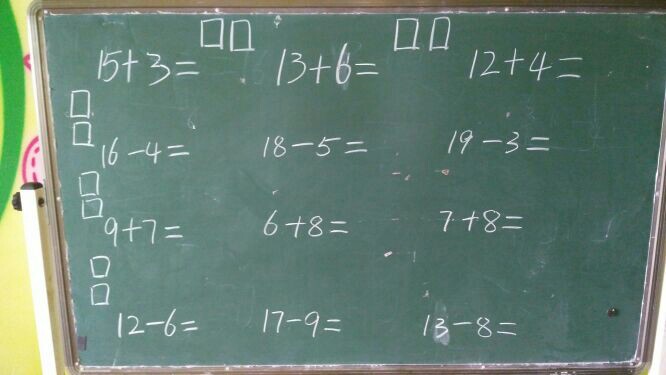 15+3= 13+6= 12+4=
16-4= 18-5= 19-3=
9+7= 6+8= 7+8=
12-6= 17-9= 13-8=